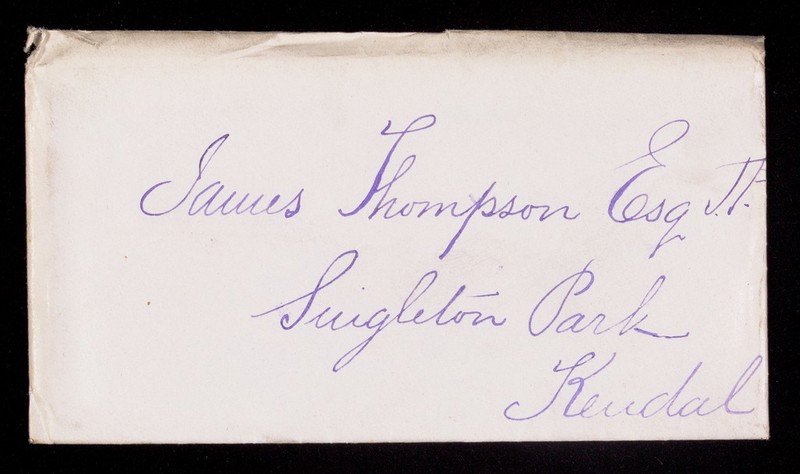 James Thompson Esq J.P.
Singleton Park
Kendal